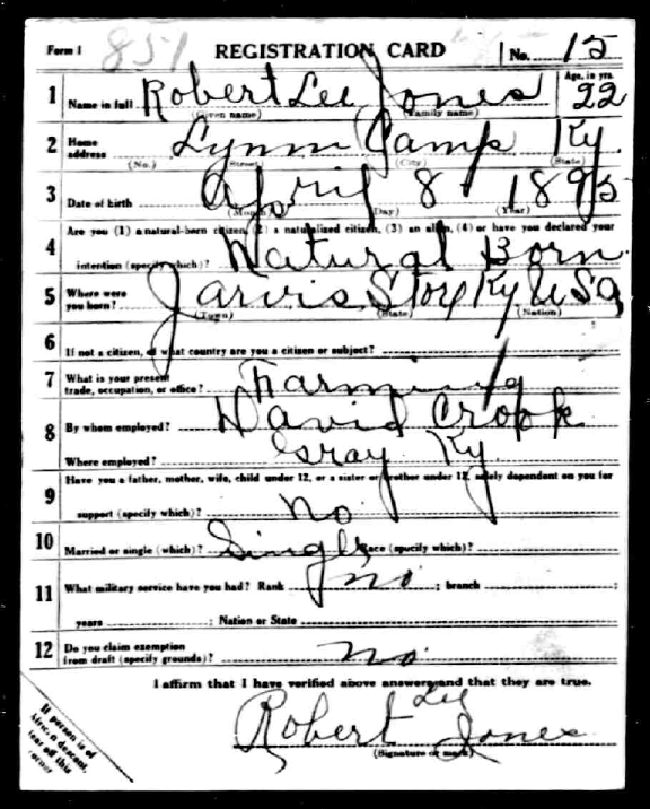 Form 1 851 REGISTRATION CARD No. 15
1 Name in full Robert Lee Jones Age, in yrs. 22
(Given name) (Family name)
2 Home address Lynn Camp Ky.
(No.) (Street) (City) (State)
3 Date of birth April 8 1895
(Month) (Day) (Year)
4 Are you (1) a natural-born citizen, (2) a naturalized citizen, (3) an alien, (4) or have you declared your
intention (specify which)? Natural Born.
5 Where were you born? Jarvis Store Ky USA
(Town) (State) (Nation)
6 If not a citizen, of what country are you a citizen or subject?
7 What is your present trade, occupation, or office? Farming
8 By whom employed? David Crook
Where employed? Gray Ky.
9 Have you a father, mother, wife, child under 12, or a sister or brother under 12, solely dependent on you for
support (specify which)? No
10 Married or single (which)? Single Race (specify which)?
11 What military service have you had? Rank no ; branch ;
years ; Nation or State
12 Do you claim exemption from draft (specify grounds)? no
I affirm that I have verified above answers and that they are true.
Robert Lee Jones
(Signature or mark)
If person is of
African descent,
tear off this
corner